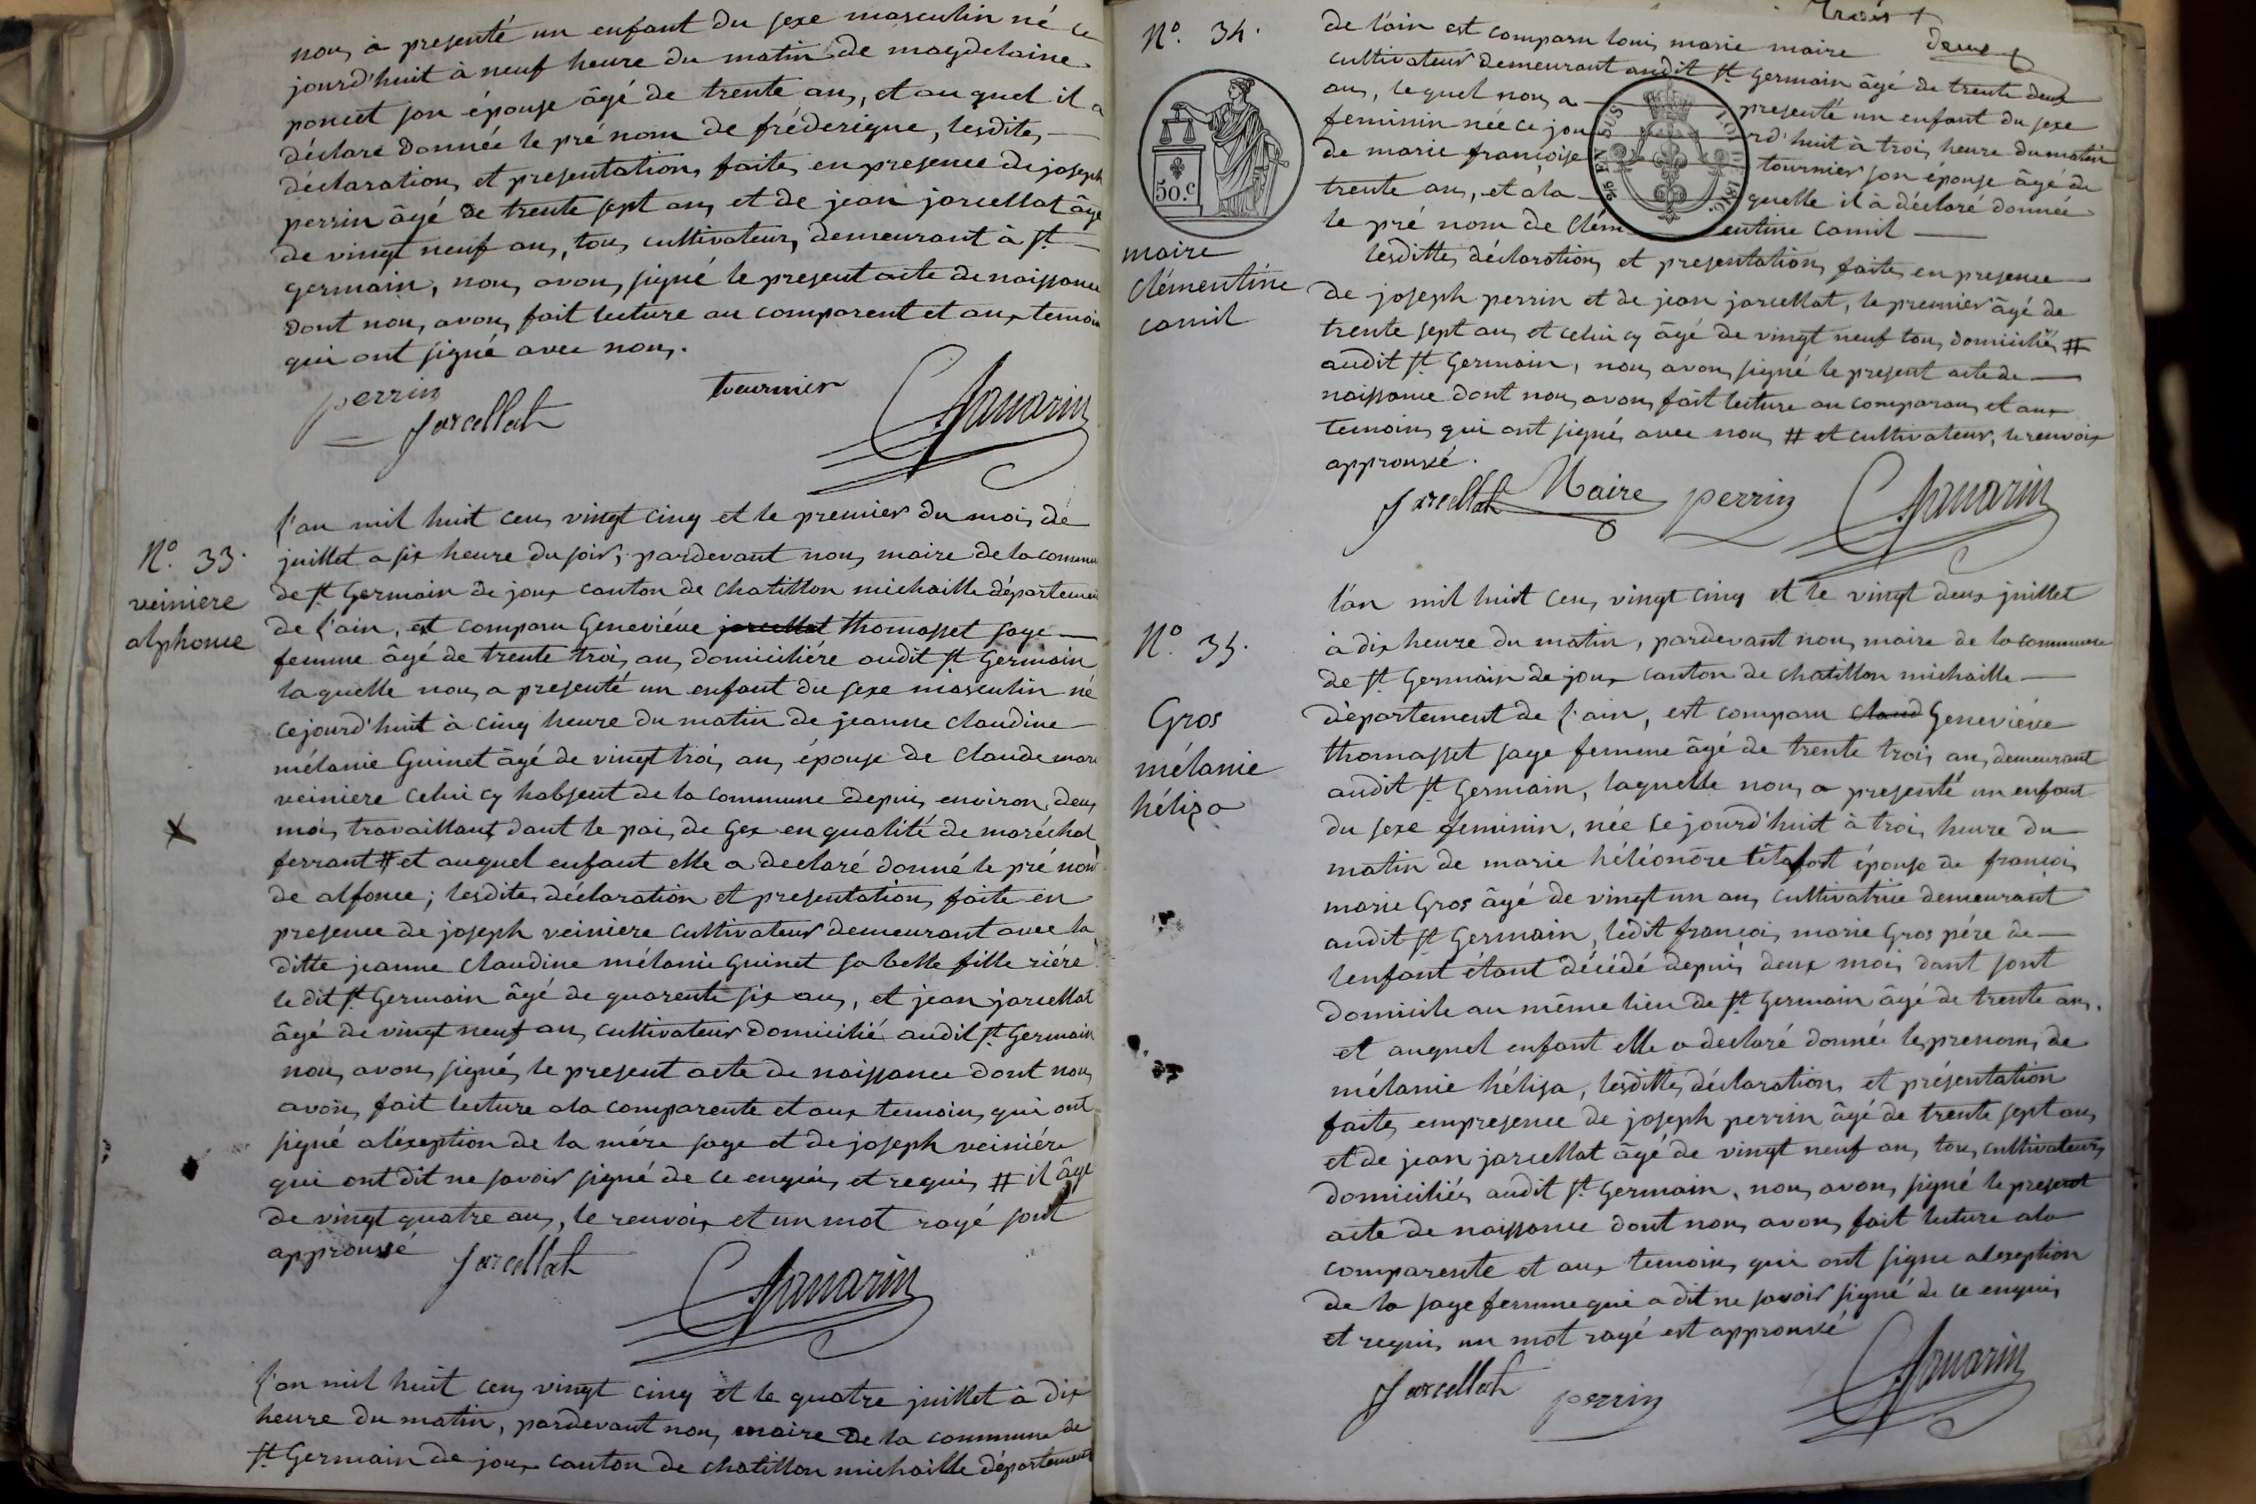 nous à presenté un enfant du sexe masculin né ce
jourd'huit à neuf heure du matin de magdelaine
poncet son épouse âgé de trente ans, et au quel il a
déclaré donnée le pré nom de fréderique, lesdites
déclarations et presentations faites en presence de joseph
perrin âgé de trente sept ans et de jean jarcellat âgé
de vingt neuf ans, tous cultivateurs demeurant à St
germain, nous avons signé le present acte de naissance
dont nous avons fait lecture au comparent et aux temoins
qui ont signé avec nous.
perrin
tournier
Jarcellat
N.o 33.
veiniere
alphonce
l'an mil huit cens vingt cinq et le premier du mois de
juillet a six heure du soir, pardevant nous maire de la commune
de St Germain de joux canton de chatillon michaille département
de l'ain, est comparu Geneviéve jarcellat thomasset sage
femme âgé de trente trois ans domiciliére audit St Germain
laquelle nous a presenté un enfant du sexe masculin né
cejourd'huit à cinq heure du matin de jeanne claudine
mélanie Guinet âgé de vingt trois ans épouse de Claude marie
veiniere celui cy habsent de la commune depuis environ deux
mois travaillant dant le pais de Gex en qualité de maréchal
ferrant # et auquel enfant elle a declaré donné le pré nom
de alfonce; lesdites déclaration et presentations faite en
presence de joseph veiniere cultivateur demeurant avec la
ditte jeanne claudine mélanie Guinet sa belle fille riére
le dit St Germain âgé de quarente six ans, et jean jarcellat
âgé de vingt neuf ans cultivateur domicilié audit St Germain
nous avons signés le present acte de naissance dont nous
avons fait lecture ala comparente et aux temoins qui ont
signé a l'éxeption de la mére sage et de joseph veiniére
qui ont dit ne savoir signé de ce enquis et requis # il âgé
de vingt quatre ans, le renvois et un mot rayé sont
approuvé
Jarcellat
l'an mil huit cens vingt cinq et le quatre juillet à dix
heure du matin, pardevant nous maire de la commune de
St Germain de joux canton de chatillon michaille département
trois
deux
N.o 34.
50.c
maire
clémentine
camil
de l'ain est comparu louis marie maire
cultivateur demeurant audit St Germain âgé de trente deux
ans, lequel nous a presenté un enfant du sexe
feminin née ce jourd'huit à trois heure du matin
de marie françoise tournier son épouse âgé de
trente ans, et a la quelle il à déclaré donnée
le pré nom de Clémentine Camil
lesdittes déclarations et presentations faites en presence
de joseph perrin et de jean jarcellat, le premier âgé de
trente sept ans et celui cy âgé de vingt neuf tous domiciliés #
audit St Germain, nous avons signé le present acte de
naissance dont nous avons fait lecture au comparans et aux
temoins qui ont signés avec nous # et cultivateurs, le renvois
approuvé.
Jarcellat Maire perrin
N.o 35.
Gros
mélanie
héliza
l'an mil huit cens vingt cinq et le vingt deux juillet
à dix heure du matin, pardevant nous maire de la commune
de St Germain de joux canton de chatillon michaille
département de l'ain, est comparu claud Geneviéve
thomasset sage femme âgé de trente trois ans demeurant
audit St Germain, laquelle nous a presenté un enfant
du sexe feminin, née ce jourd'huit à trois heure du
matin de marie héléonore épouse de françois
marie Gros âgé de vingt un ans cultivatrice demeurant
audit St Germain, ledit françois marie Gros pére de
lenfant étant décédé depuis deux mois dant sont
domicile au même lieu de St Germain âgé de trente ans.
et auquel enfant elle a declaré donnée les prenoms de
mélanie héliza, lesdittes déclarations et présentation
faites empresence de joseph perrin âgé de trente sept ans
et de jean jarcellat âgé de vingt neuf ans tous cultivateurs
domiciliés audit St Germain, nous avons signé le present
acte de naissance dont nous avons fait lecture ala
comparente et aux temoins qui ont signe alexeption
de la sage femme qui a dit ne savoir signé de ce enquis
et requis un mot rayé est approuvé
Jarcellat
perrin